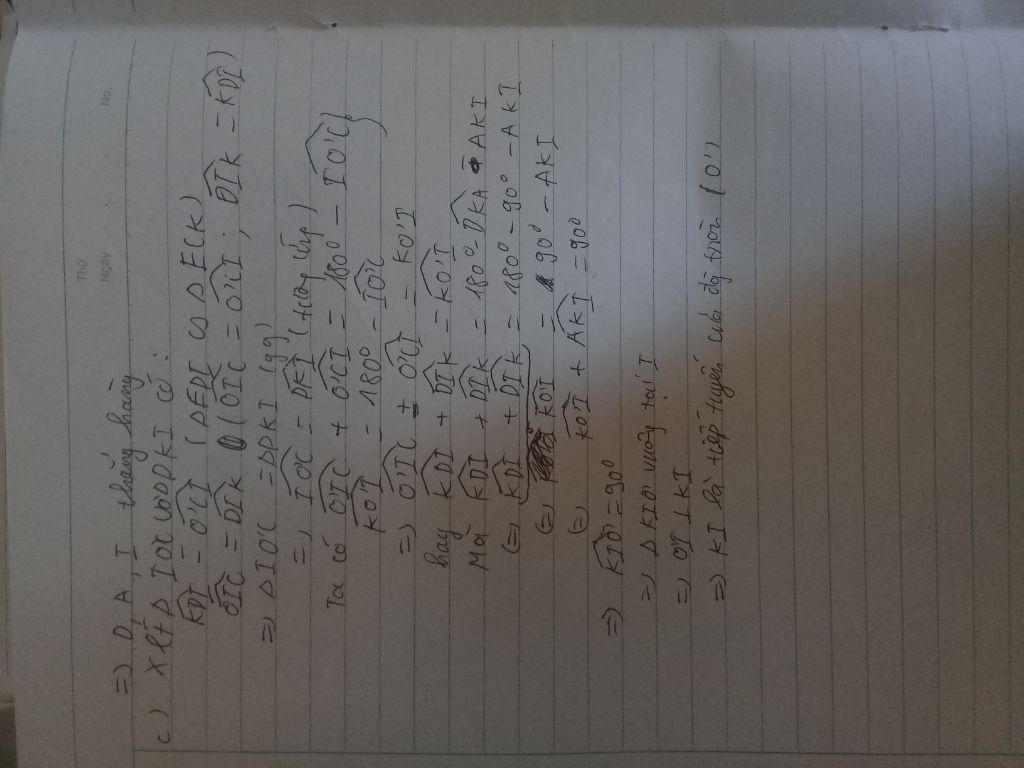 Thứ
Ngày No.
=) D, A, I thẳng hàng
c) Xét Δ IO'C và ΔDKI có:
KDI = O'CI (ΔEDI ∽ Δ ECK)
O'IC = DIK (O'IC = O'CI; DIK = KDI)
=) Δ IO'C = ΔDKI (gg)
=) IO'C = DKI (tương ứng)
Ta có O'IC + O'CI = 180° - IO'C
KO'I = 180° - IO'C
=) O'IC + O'CI = KO'I
hay KDI + DIK = KO'I
Mà KDI + DIK = 180° - DKA - AKI
(=) KDI + DIK = 180° - 90° - AKI
(=) KO'I = 90° - AKI
(=) KO'I + AKI = 90°
=) KIO' = 90°
=) Δ KIO' vuông tại I
=) O'I ⊥ KI
=) KI là tiếp tuyến của độ tròn (O')